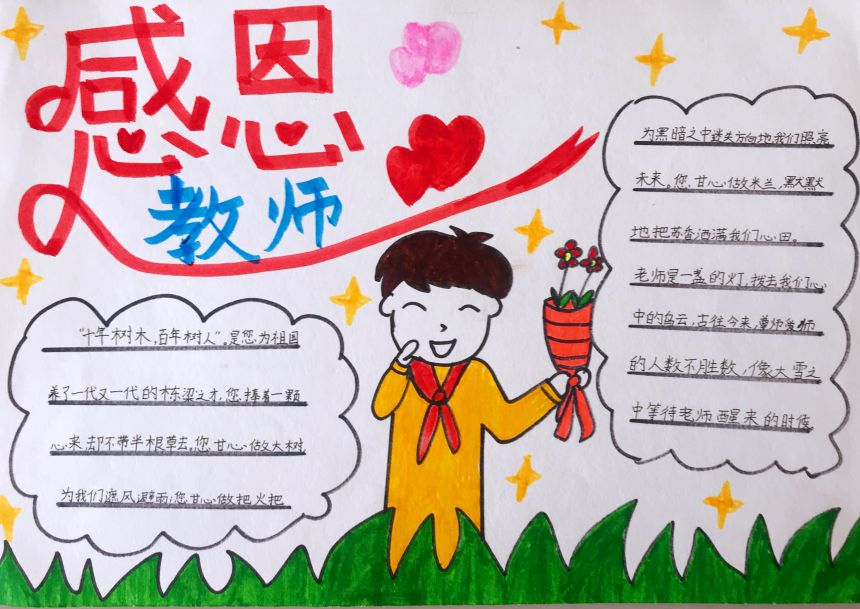 感恩
教师
“十年树木，百年树人”。是您，为祖国
养了一代又一代的栋梁之才，您，捧着一颗
心来，却不带半根草去。您，甘心做大树，
为我们遮风避雨；您，甘心做把火把
为黑暗之中迷失方向地我们照亮
未来。您，甘心做米兰，默默
地把芳香洒满我们心田。
老师是一盏的灯，拨去我们心
中的乌云，古往今来，尊师爱师
的人数不胜数，像大雪之
中等待老师醒来的时候。